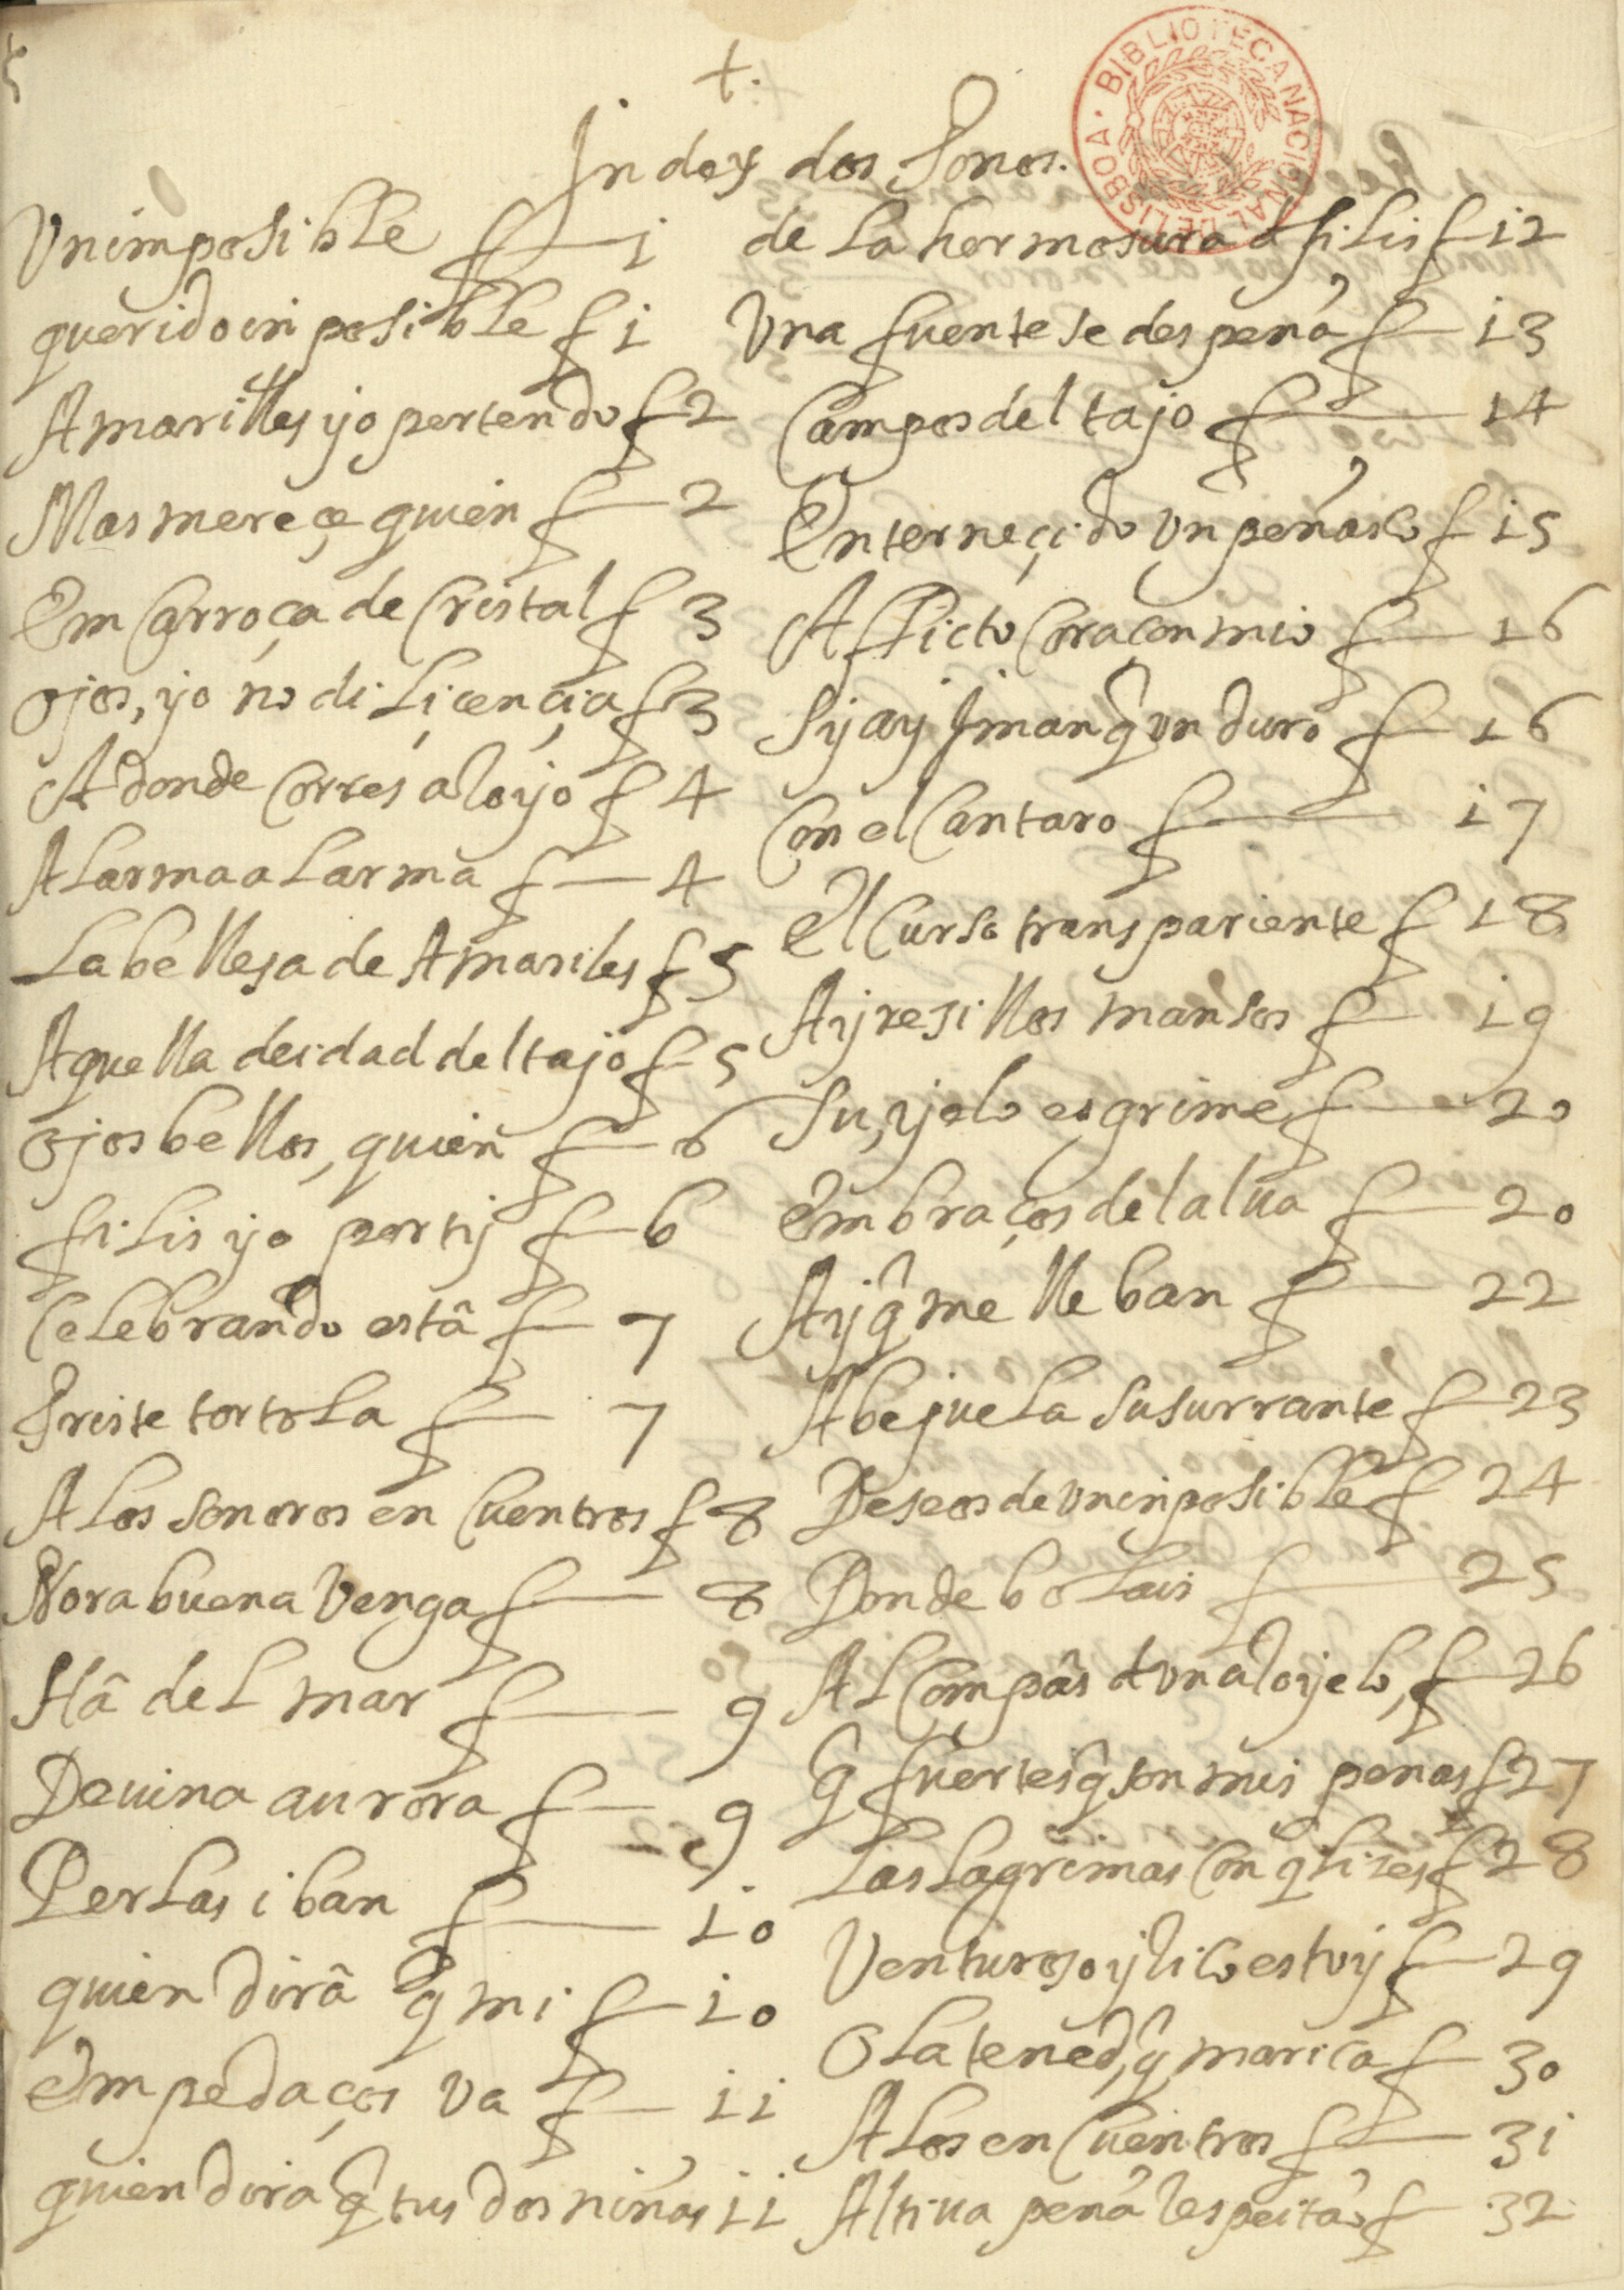 +.
Index dos Tonos.
Vnimposible f 1
querido inposible f 1
Amarilles yo pertendo f 2
Mas mereçe quien f 2
Em Carroça de Cristal f 3
ojos, yo no di liçençia f 3
A donde Corres aloyo f 4
Alarma alarma f 4
La bellesa de Amariles f 5
Aquella deidad del tajo f 5
ojos bellos, quien f 6
filis yo por tij f 6
Celebrando estâ f 7
Triste tortola f 7
A Los sonoros en Cuentros f 8
Nora buena Venga f 8
Hâ del mar f 9
Deuina aurora f 9
Perlas iban f 10
quien dirâ q̂ mi f 10
Em pedaços va f 11
quien dira q̂ tus dos niñas 11
de la hermosura d filis f 12
Vna fuente se despeña f 13
Campos del tajo f 14
Enterneçido vn peñasco f 15
Aflicto Coraçon mio f 16
Sy ay Jman q̂ vn duro f 16
Con el Cantaro f 17
El Curso transpariente f 18
Ayresillos mansos f 19
Su, yelo esgrime f 20
Em braços del alua f 20
Ay q̂ me lleban f 22
Abejuela susurrante f 23
Deseos de vn inposible f 24
Donde bolais f 25
Al Compâs d vn aroyelo, f 26
q̂ fuertes q̂ son mis penas f 27
Las lagrimas Con q̂ f 28
Venturoso y estoy f 29
Ola tened, q̂ marica f 30
A Los en Cuentros f 31
Altiua peña f 32
BIBLIOTECA NACIONAL DE LISBOA